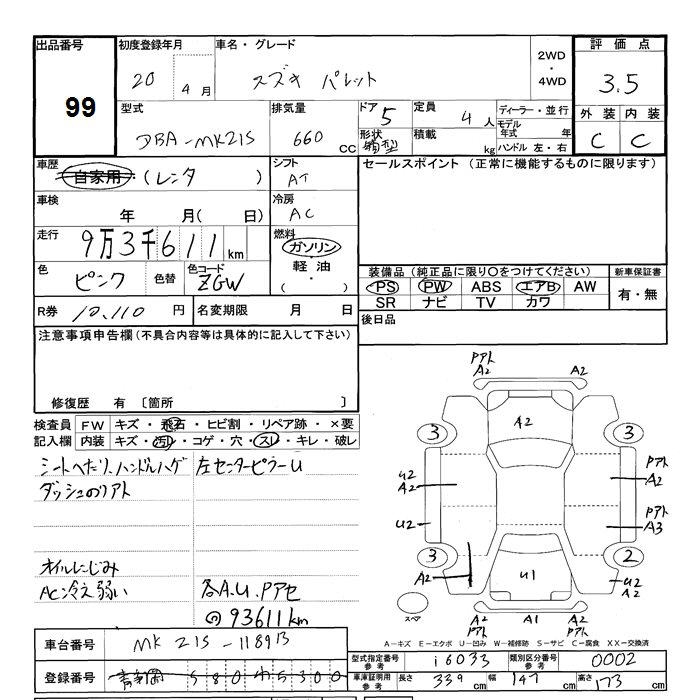 出品番号
99
初度登録年月
20 4月
車名・グレード
スズキ パレット
2WD
・
4WD
評価点
3.5
外装 内装
C C
型式
DBA-MK21S
排気量
660 CC
ドア 5
形状 箱型
定員 4人
積載 kg
ディーラー・並行
モデル年式 年
ハンドル 左・右
車歴
自家用 (レンタ )
シフト
AT
車検
年 月( 日)
冷房
AC
走行
9万3千611km
燃料
ガソリン
軽油
( ・ )
色
ピンク
色替
色コード
ZGW
R券 10,110円
名変期限 月 日
セールスポイント (正常に機能するものに限ります)
装備品 (純正品に限り○をつけてください)
PS PW ABS エアB AW
SR ナビ TV カワ
新車保証書
有・無
後日品
注意事項申告欄 (不具合内容等は具体的に記入して下さい)
修復歴 有 〔箇所 〕
検査員 FW キズ・飛石・ヒビ割・リペア跡・×要
記入欄 内装 キズ・汚レ・コゲ・穴・スレ・キレ・破レ
シートヘたり、ハンドルハゲ
ダッシュのリアト
左センターピラーU
オイルにじみ
AC冷え弱い
各A.U.Pアセ
@93611km
Pアト
A2 A2
A2
3 3
U2
A2
Pアト
A2
U2
Pアト
A3
3 2
A2
U1
U2
A2
スペア
A2 A1 A2
Pアト Pアト
A-キズ E-エクボ U-凹み W-補修跡 S-サビ C-腐食 XX-交換済
車台番号 MK21S-118913
登録番号 580 5300
型式指定番号 参考 16033
類別区分番号 参考 0002
車庫証明用 参考 長さ 339cm 幅 147cm 高さ 173cm